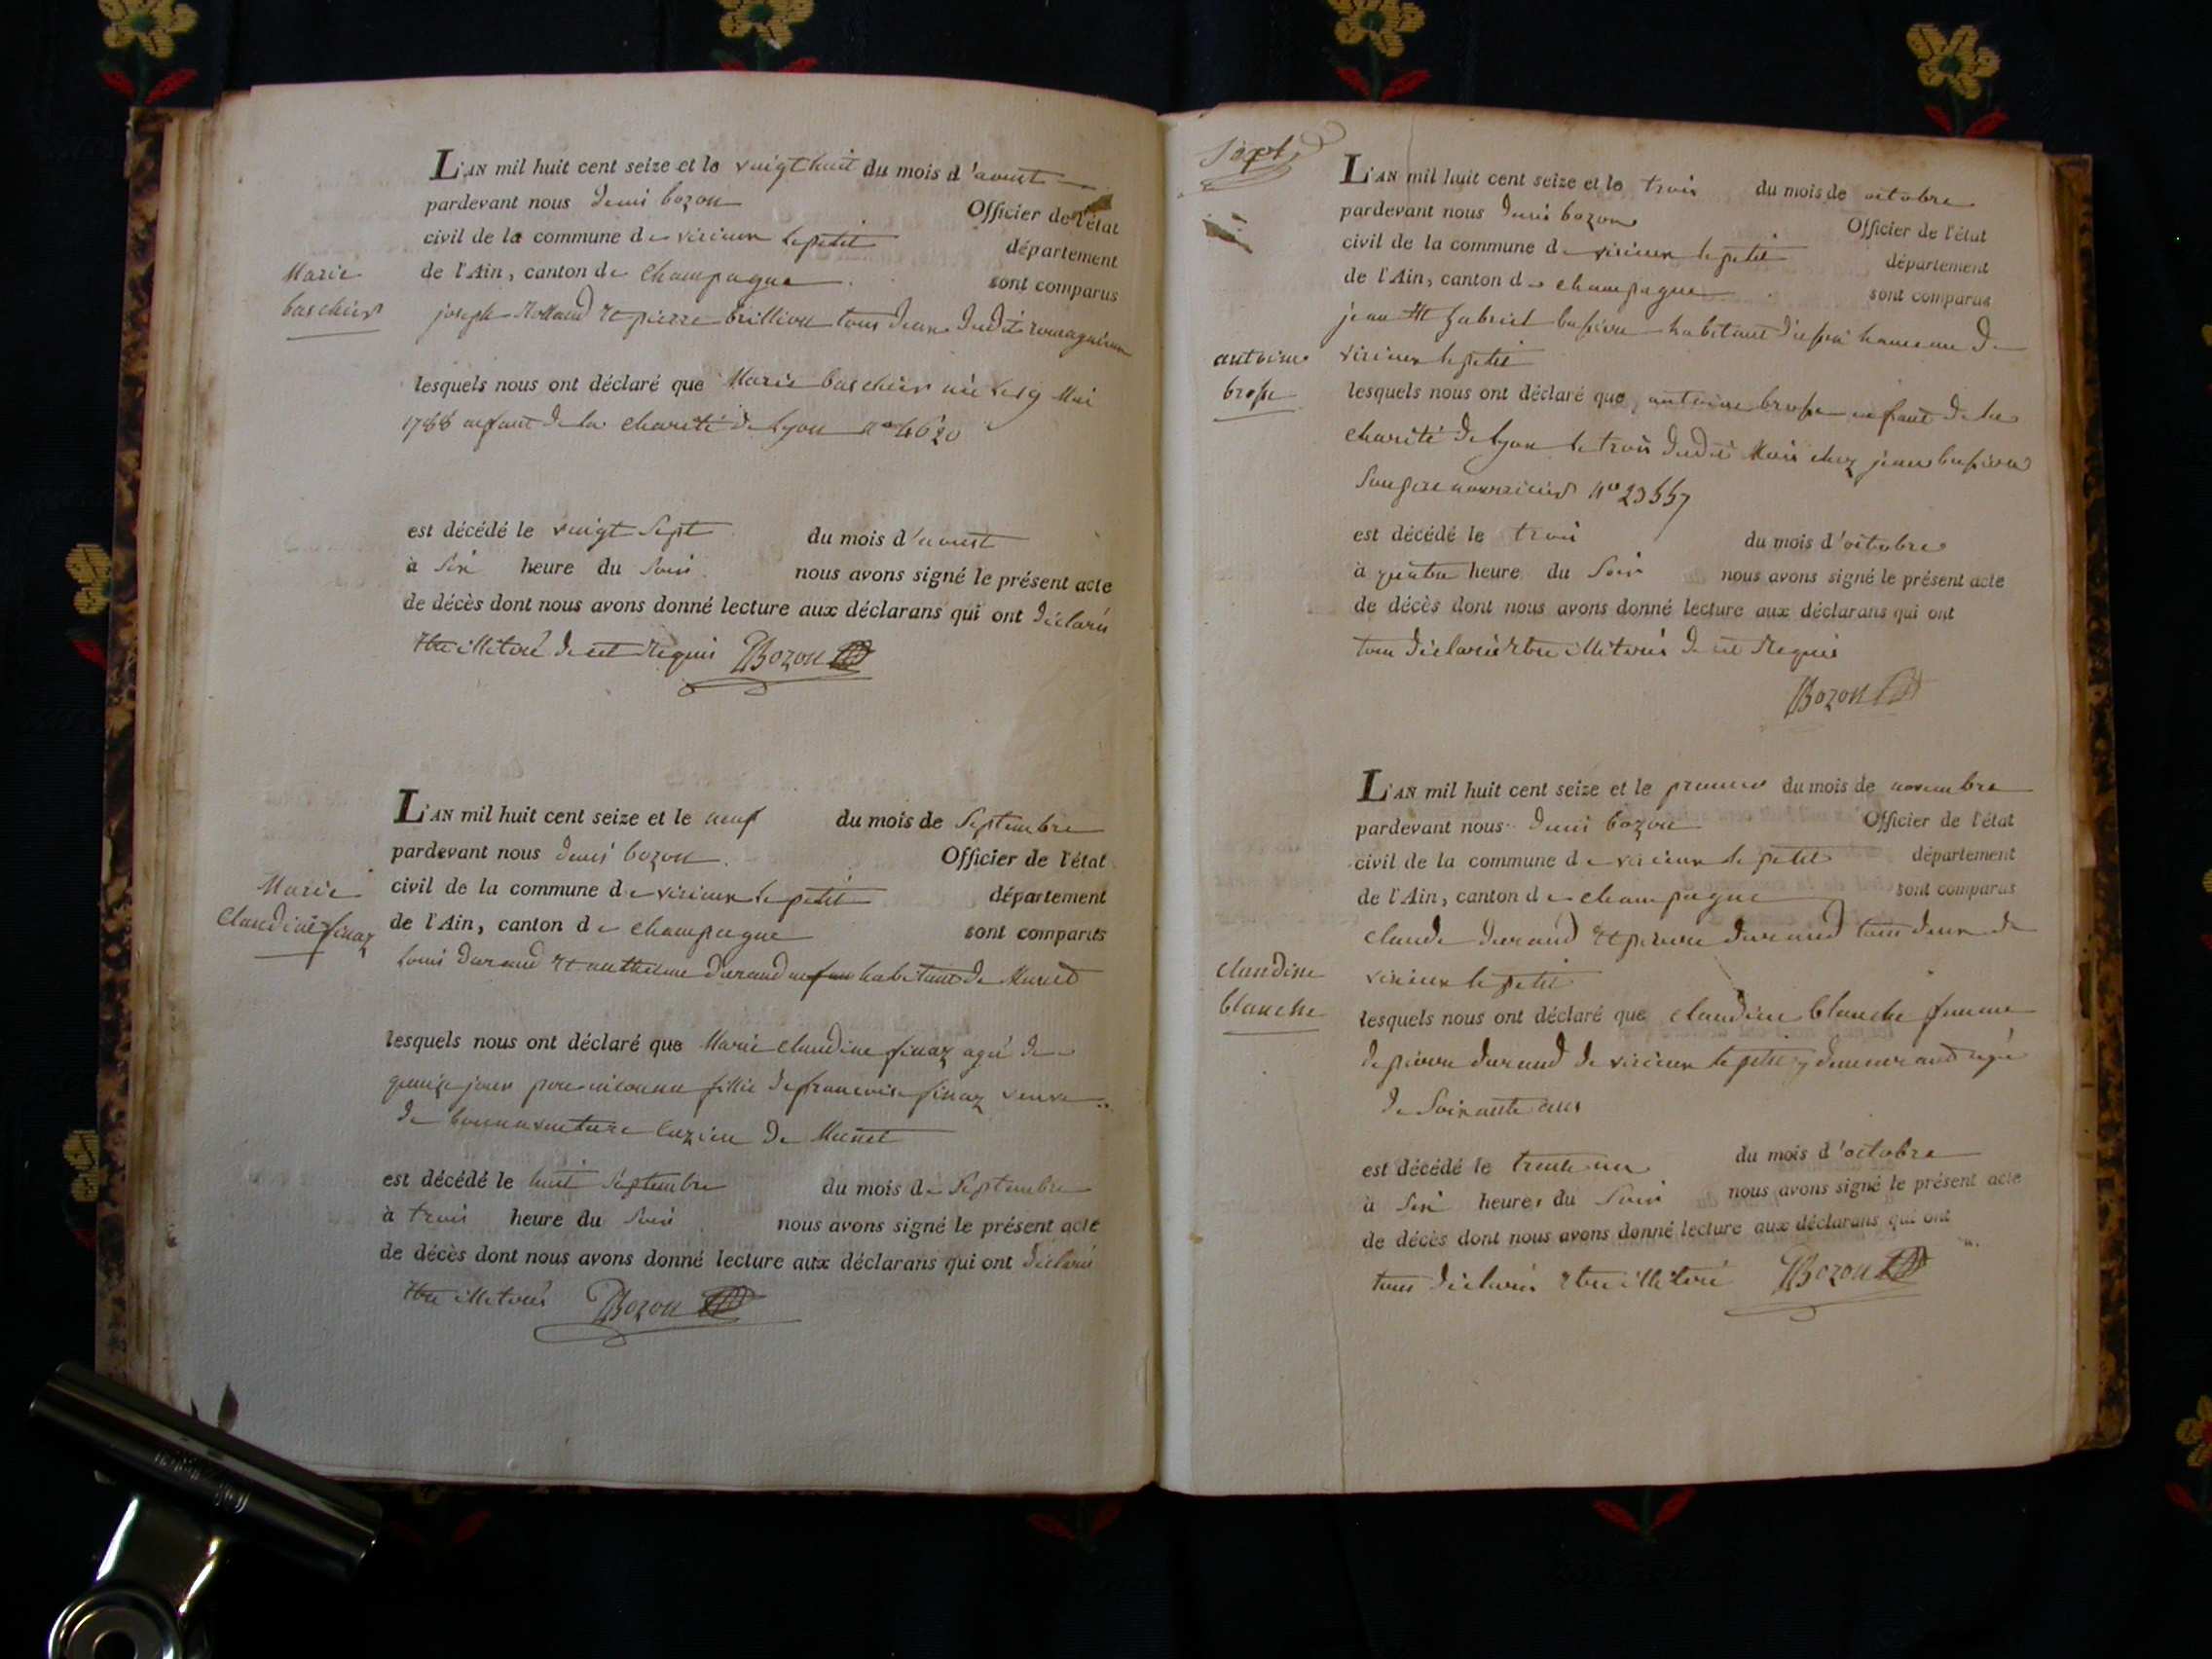 L'AN mil huit cent seize et le vingt huit du mois d'aoust
pardevant nous denis bozon Officier de l'état
civil de la commune de virieux le petit département
de l'Ain, canton de Champagne sont comparus
Marie
joseph Rolland et pierre brillion tous deux dudit romagnieux
lesquels nous ont déclaré que Marie née le 19 Mai
1788 enfant de la charité de Lyon no 4620
est décédé le vingt Sept du mois d'aoust
à Six heure du Soir nous avons signé le présent acte
de décès dont nous avons donné lecture aux déclarans qui ont déclarés
être illitéré de cet Requis Bozon
L'AN mil huit cent seize et le neuf du mois de Septembre
pardevant nous denis bozon Officier de l'état
Marie
civil de la commune de virieux le petit département
Claudine finaz
de l'Ain, canton de champagne sont comparus
Louis durand et anthelme durand habitant de Munet
lesquels nous ont déclaré que Marie claudine finaz agé de
quinze jour père inconnu fillie de francoise finaz veuve
de bonnaventure de Munet
est décédé le huit Septembre du mois de Septembre
à trois heure du Soir nous avons signé le présent acte
de décès dont nous avons donné lecture aux déclarans qui ont déclarés
être illiterés Bozon
Sept
L'AN mil huit cent seize et le trois du mois de octobre
pardevant nous denis bozon Officier de l'état
civil de la commune de virieux le petit département
de l'Ain, canton de champagne sont comparus
jean et gabriel habitant hameau de
antoine
virieux le petit
brosse
lesquels nous ont déclaré que antoine brosse enfant de la
charité de lyon le trois dudit Mois chez jean
Son pere nourricier no
est décédé le trois du mois d'octobre
à quatre heure du Soir nous avons signé le présent acte
de décès dont nous avons donné lecture aux déclarans qui ont
tous déclarés être illiterés de cet Requis
Bozon
L'AN mil huit cent seize et le premier du mois de novembre
pardevant nous denis bozon Officier de l'état
civil de la commune de virieux le petit département
de l'Ain, canton de champagne sont comparus
claude durand et pierre durand tous deux de
claudine
virieux le petit
blanche
lesquels nous ont déclaré que claudine blanche femme
de pierre durand de virieux le petit y demeurand agé
de Soixante ans
est décédé le trente un du mois d'octobre
à Six heures du Soir nous avons signé le présent acte
de décès dont nous avons donné lecture aux déclarans qui ont
tous déclarés être illiteré Bozon